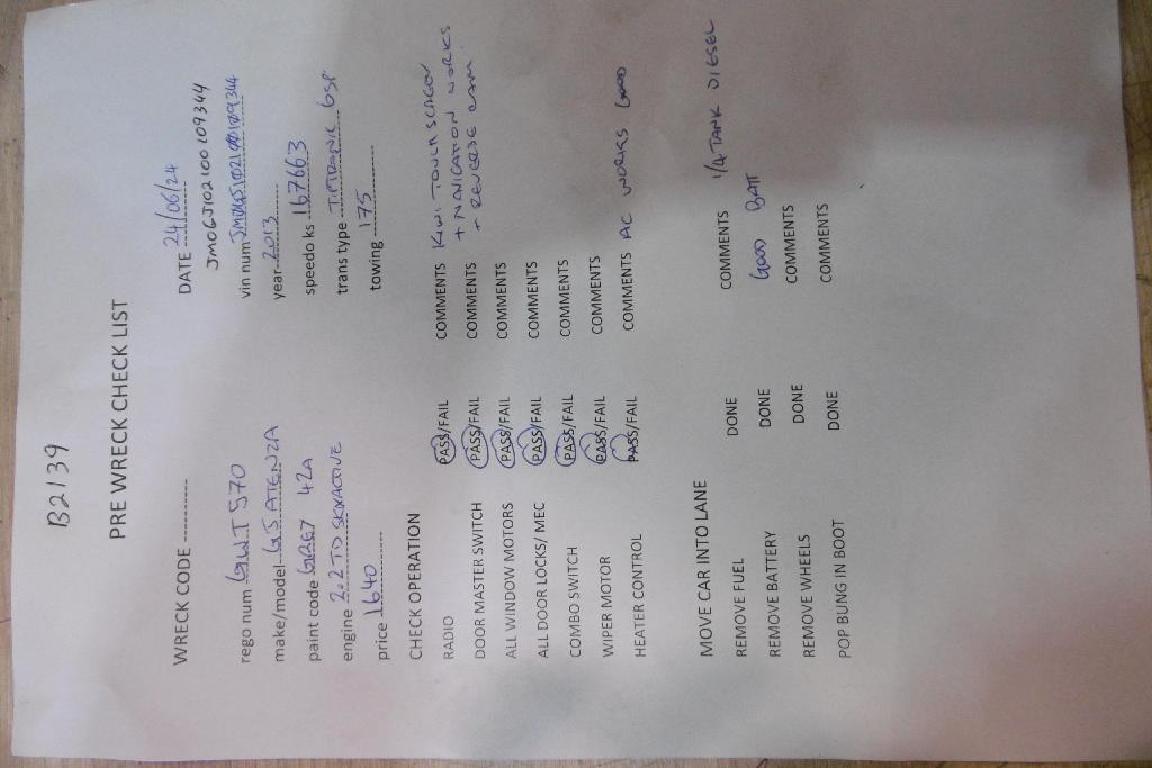 B2139
PRE WRECK CHECK LIST
WRECK CODE ----------- DATE 24/06/24
JM0GJ102100109344
rego num GWT570 vin num
make/model GJ ATENZA year 2013
paint code GREY 42A speedo ks 167663
engine 2.2 TD SKYACTIVE trans type TIPTRONIC 6SP
price 1640 towing 175
CHECK OPERATION
RADIO PASS/FAIL COMMENTS KIWI TOUCHSCREEN
+ NAVIGATION WORKS
DOOR MASTER SWITCH PASS/FAIL COMMENTS + REVERSE CAM
ALL WINDOW MOTORS PASS/FAIL COMMENTS
ALL DOOR LOCKS/ MEC PASS/FAIL COMMENTS
COMBO SWITCH PASS/FAIL COMMENTS
WIPER MOTOR PASS/FAIL COMMENTS
HEATER CONTROL PASS/FAIL COMMENTS AC WORKS GOOD
MOVE CAR INTO LANE
REMOVE FUEL DONE COMMENTS 1/4 TANK DIESEL
REMOVE BATTERY DONE GOOD BATT
REMOVE WHEELS DONE COMMENTS
POP BUNG IN BOOT DONE COMMENTS